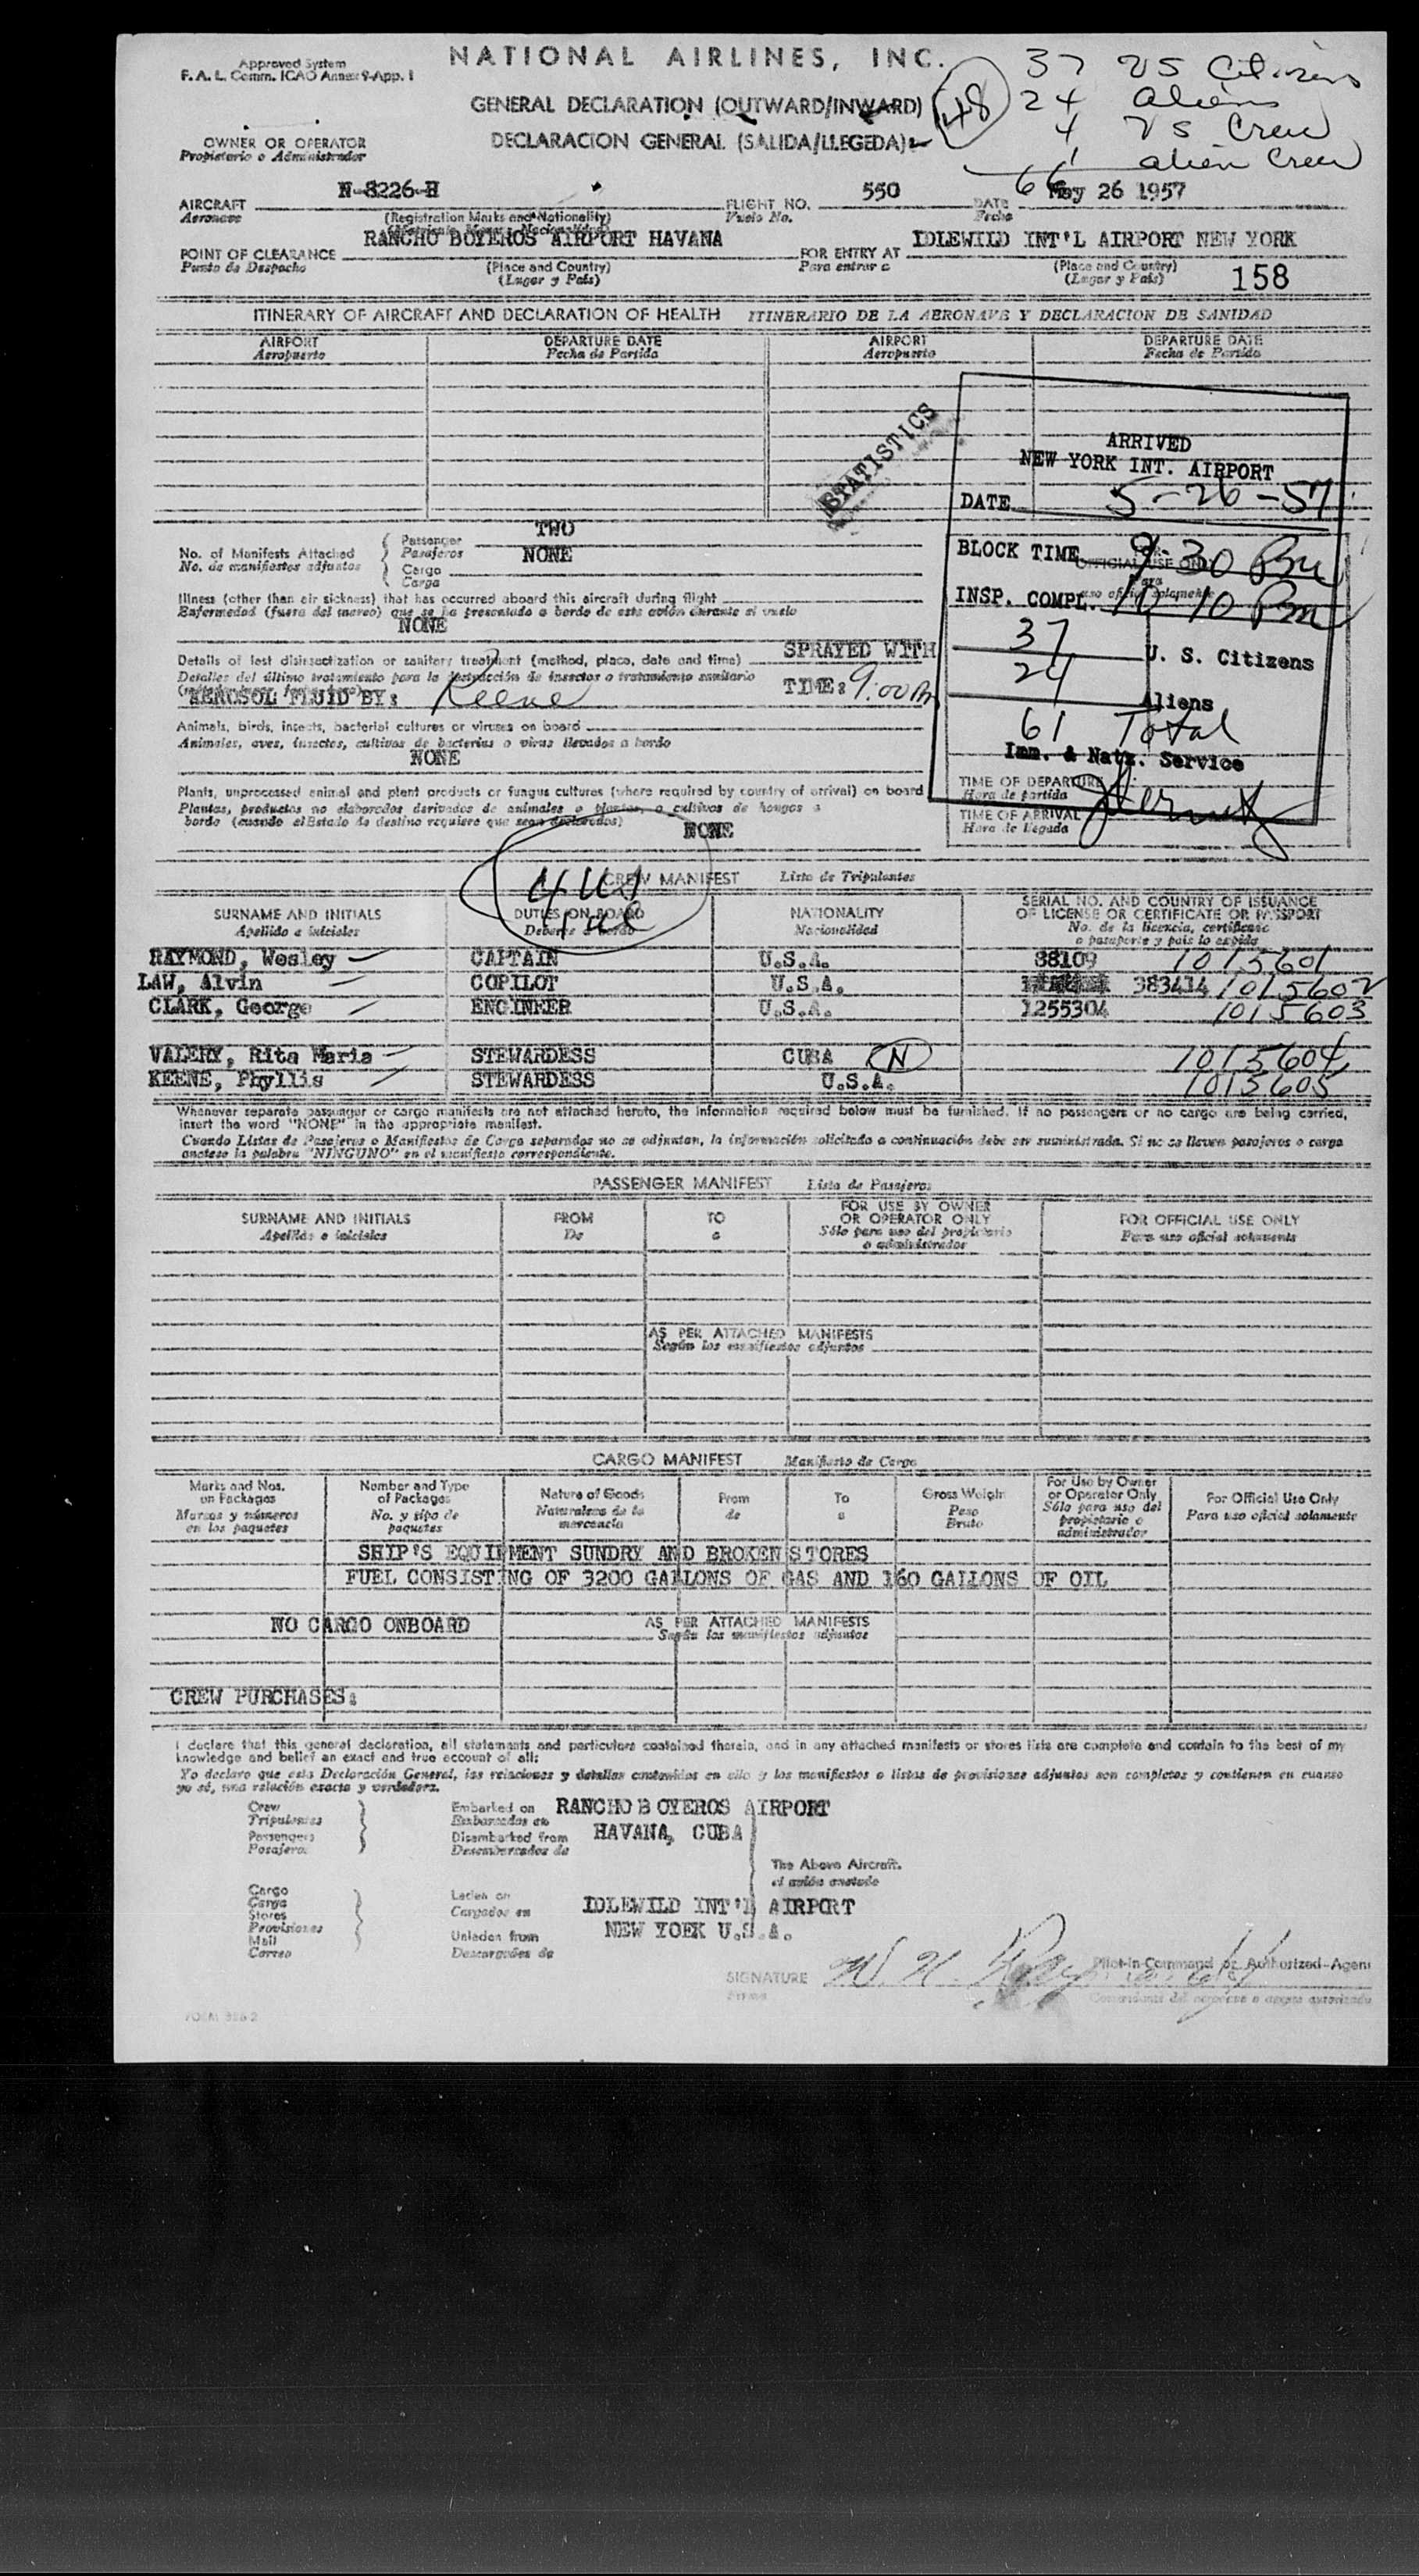 NATIONAL AIRLINES, INC.
Approved System
F. A. L. Comm. ICAO Annex 9-App. I
37 US Citizens
GENERAL DECLARATION (OUTWARD/INWARD)
48
24 aliens
OWNER OR OPERATOR
Propietario o Administrador
DECLARACION GENERAL (SALIDA/LLEGEDA)
4 US Crew
1 alien Crew
66
AIRCRAFT N-8226-H FLIGHT NO. 550 DATE May 26 1957
Aeronave (Registration Marks and Nationality) Vuelo No. Fecha
POINT OF CLEARANCE RANCHO BOYEROS AIRPORT HAVANA FOR ENTRY AT IDLEWILD INT'L AIRPORT NEW YORK
Punto de Despacho (Place and Country) Para entrar a (Place and Country)
(Lugar y País) (Lugar y País) 158
ITINERARY OF AIRCRAFT AND DECLARATION OF HEALTH ITINERARIO DE LA AERONAVE Y DECLARACION DE SANIDAD
AIRPORT DEPARTURE DATE AIRPORT DEPARTURE DATE
Aeropuerto Fecha de Partida Aeropuerto Fecha de Partida
STATISTICS
ARRIVED
NEW YORK INT. AIRPORT
DATE 5-26-57
BLOCK TIME 9:30 Pm
OFFICIAL USE ONLY
Para
uso oficial solamente
INSP. COMPL. 10 10 Pm
37 U. S. Citizens
24 Aliens
61 Total
Imm. & Natz. Service
TIME OF DEPARTURE
Hora de partida
TIME OF ARRIVAL
Hora de llegada
No. of Manifests Attached Passenger TWO
No. de manifiestos adjuntos Pasajeros
Cargo NONE
Carga
Illness (other than air sickness) that has occurred aboard this aircraft during flight
Enfermedad (fuera del mareo) que se ha presentado a bordo de este avión durante el vuelo
NONE
Details of last disinsectization or sanitary treatment (method, place, date and time) SPRAYED WITH
Detalles del último tratamiento para la destrucción de insectos o tratamiento sanitario
AEROSOL FLUID BY: Keene TIME: 9:00 Pm
Animals, birds, insects, bacterial cultures or viruses on board
Animales, aves, insectos, cultivos de bacterias o virus llevados a bordo
NONE
Plants, unprocessed animal and plant products or fungus cultures (where required by country of arrival) on board
Plantas, productos no elaborados derivados de animales o plantas, o cultivos de hongos a
bordo (cuando el Estado de destino requiere que sean declarados)
NONE
4 US
CREW MANIFEST Lista de Tripulantes
SURNAME AND INITIALS DUTIES ON BOARD NATIONALITY SERIAL NO. AND COUNTRY OF ISSUANCE
OF LICENSE OR CERTIFICATE OR PASSPORT
Apellido e iniciales Deberes a bordo Nacionalidad No. de la licencia, certificado
o pasaporte y país lo expide
RAYMOND, Wesley CAPTAIN U.S.A. 88109 1015601
LAW, Alvin COPILOT U.S.A. 383414 1015602
CLARK, George ENGINEER U.S.A. 1255304 1015603
VALERY, Rita Maria STEWARDESS CUBA N 1015604
KEENE, Phyllis STEWARDESS U.S.A. 1015605
Whenever separate passenger or cargo manifests are not attached hereto, the information required below must be furnished. If no passengers or no cargo are being carried,
insert the word "NONE" in the appropriate manifest.
Cuando Listas de Pasajeros o Manifiestos de Carga separados no se adjuntan, la información solicitada a continuación debe ser suministrada. Si no se llevan pasajeros o carga
anotese la palabra "NINGUNO" en el manifiesto correspondiente.
PASSENGER MANIFEST Lista de Pasajeros
SURNAME AND INITIALS FROM TO FOR USE BY OWNER
OR OPERATOR ONLY FOR OFFICIAL USE ONLY
Apellido e iniciales De a Sólo para uso del propietario
o administrador Para uso oficial solamente
AS PER ATTACHED MANIFESTS
Según los manifiestos adjuntos
CARGO MANIFEST Manifiesto de Carga
Marks and Nos.
on Packages
Marcas y números
en los paquetes
Number and Type
of Packages
No. y tipo de
paquetes
Nature of Goods
Naturaleza de la
mercancía
From
de
To
a
Gross Weight
Peso
Bruto
For Use by Owner
or Operator Only
Sólo para uso del
propietario o
administrador
For Official Use Only
Para uso oficial solamente
SHIP'S EQUIPMENT SUNDRY AND BROKEN STORES
FUEL CONSISTING OF 3200 GALLONS OF GAS AND 160 GALLONS OF OIL
NO CARGO ONBOARD AS PER ATTACHED MANIFESTS
Según los manifiestos adjuntos
CREW PURCHASES:
I declare that this general declaration, all statements and particulars contained therein, and in any attached manifests or stores lists are complete and contain to the best of my
knowledge and belief an exact and true account of all:
Yo declaro que esta Declaración General, las relaciones y detalles contenidos en ella y los manifiestos o listas de provisiones adjuntos son completos y contienen en cuanto
yo sé, una relación exacta y verdadera.
Crew Embarked on RANCHO BOYEROS AIRPORT
Tripulantes Embarcados en
Passengers Disembarked from HAVANA, CUBA
Pasajeros Desembarcados de
The Above Aircraft.
el avión anotado
Cargo
Carga
Stores
Provisiones
Mail
Correo
Laden on IDLEWILD INT'L AIRPORT
Cargados en
NEW YORK U.S.A.
Unladen from
Descargados de
SIGNATURE
Firma
Pilot-in-Command or Authorized-Agent
Comandante del aeronave o agente autorizado
FORM 326-2